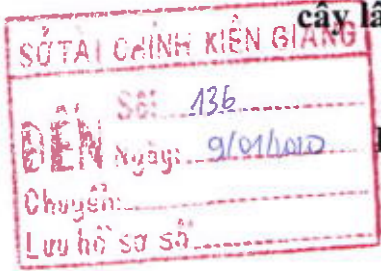 cây lâ
SỞ TÀI CHÍNH KIÊN GIANG
Số: 136
ĐẾN Ngày: 9/01/2020
Chuyển:
Lưu hồ sơ số